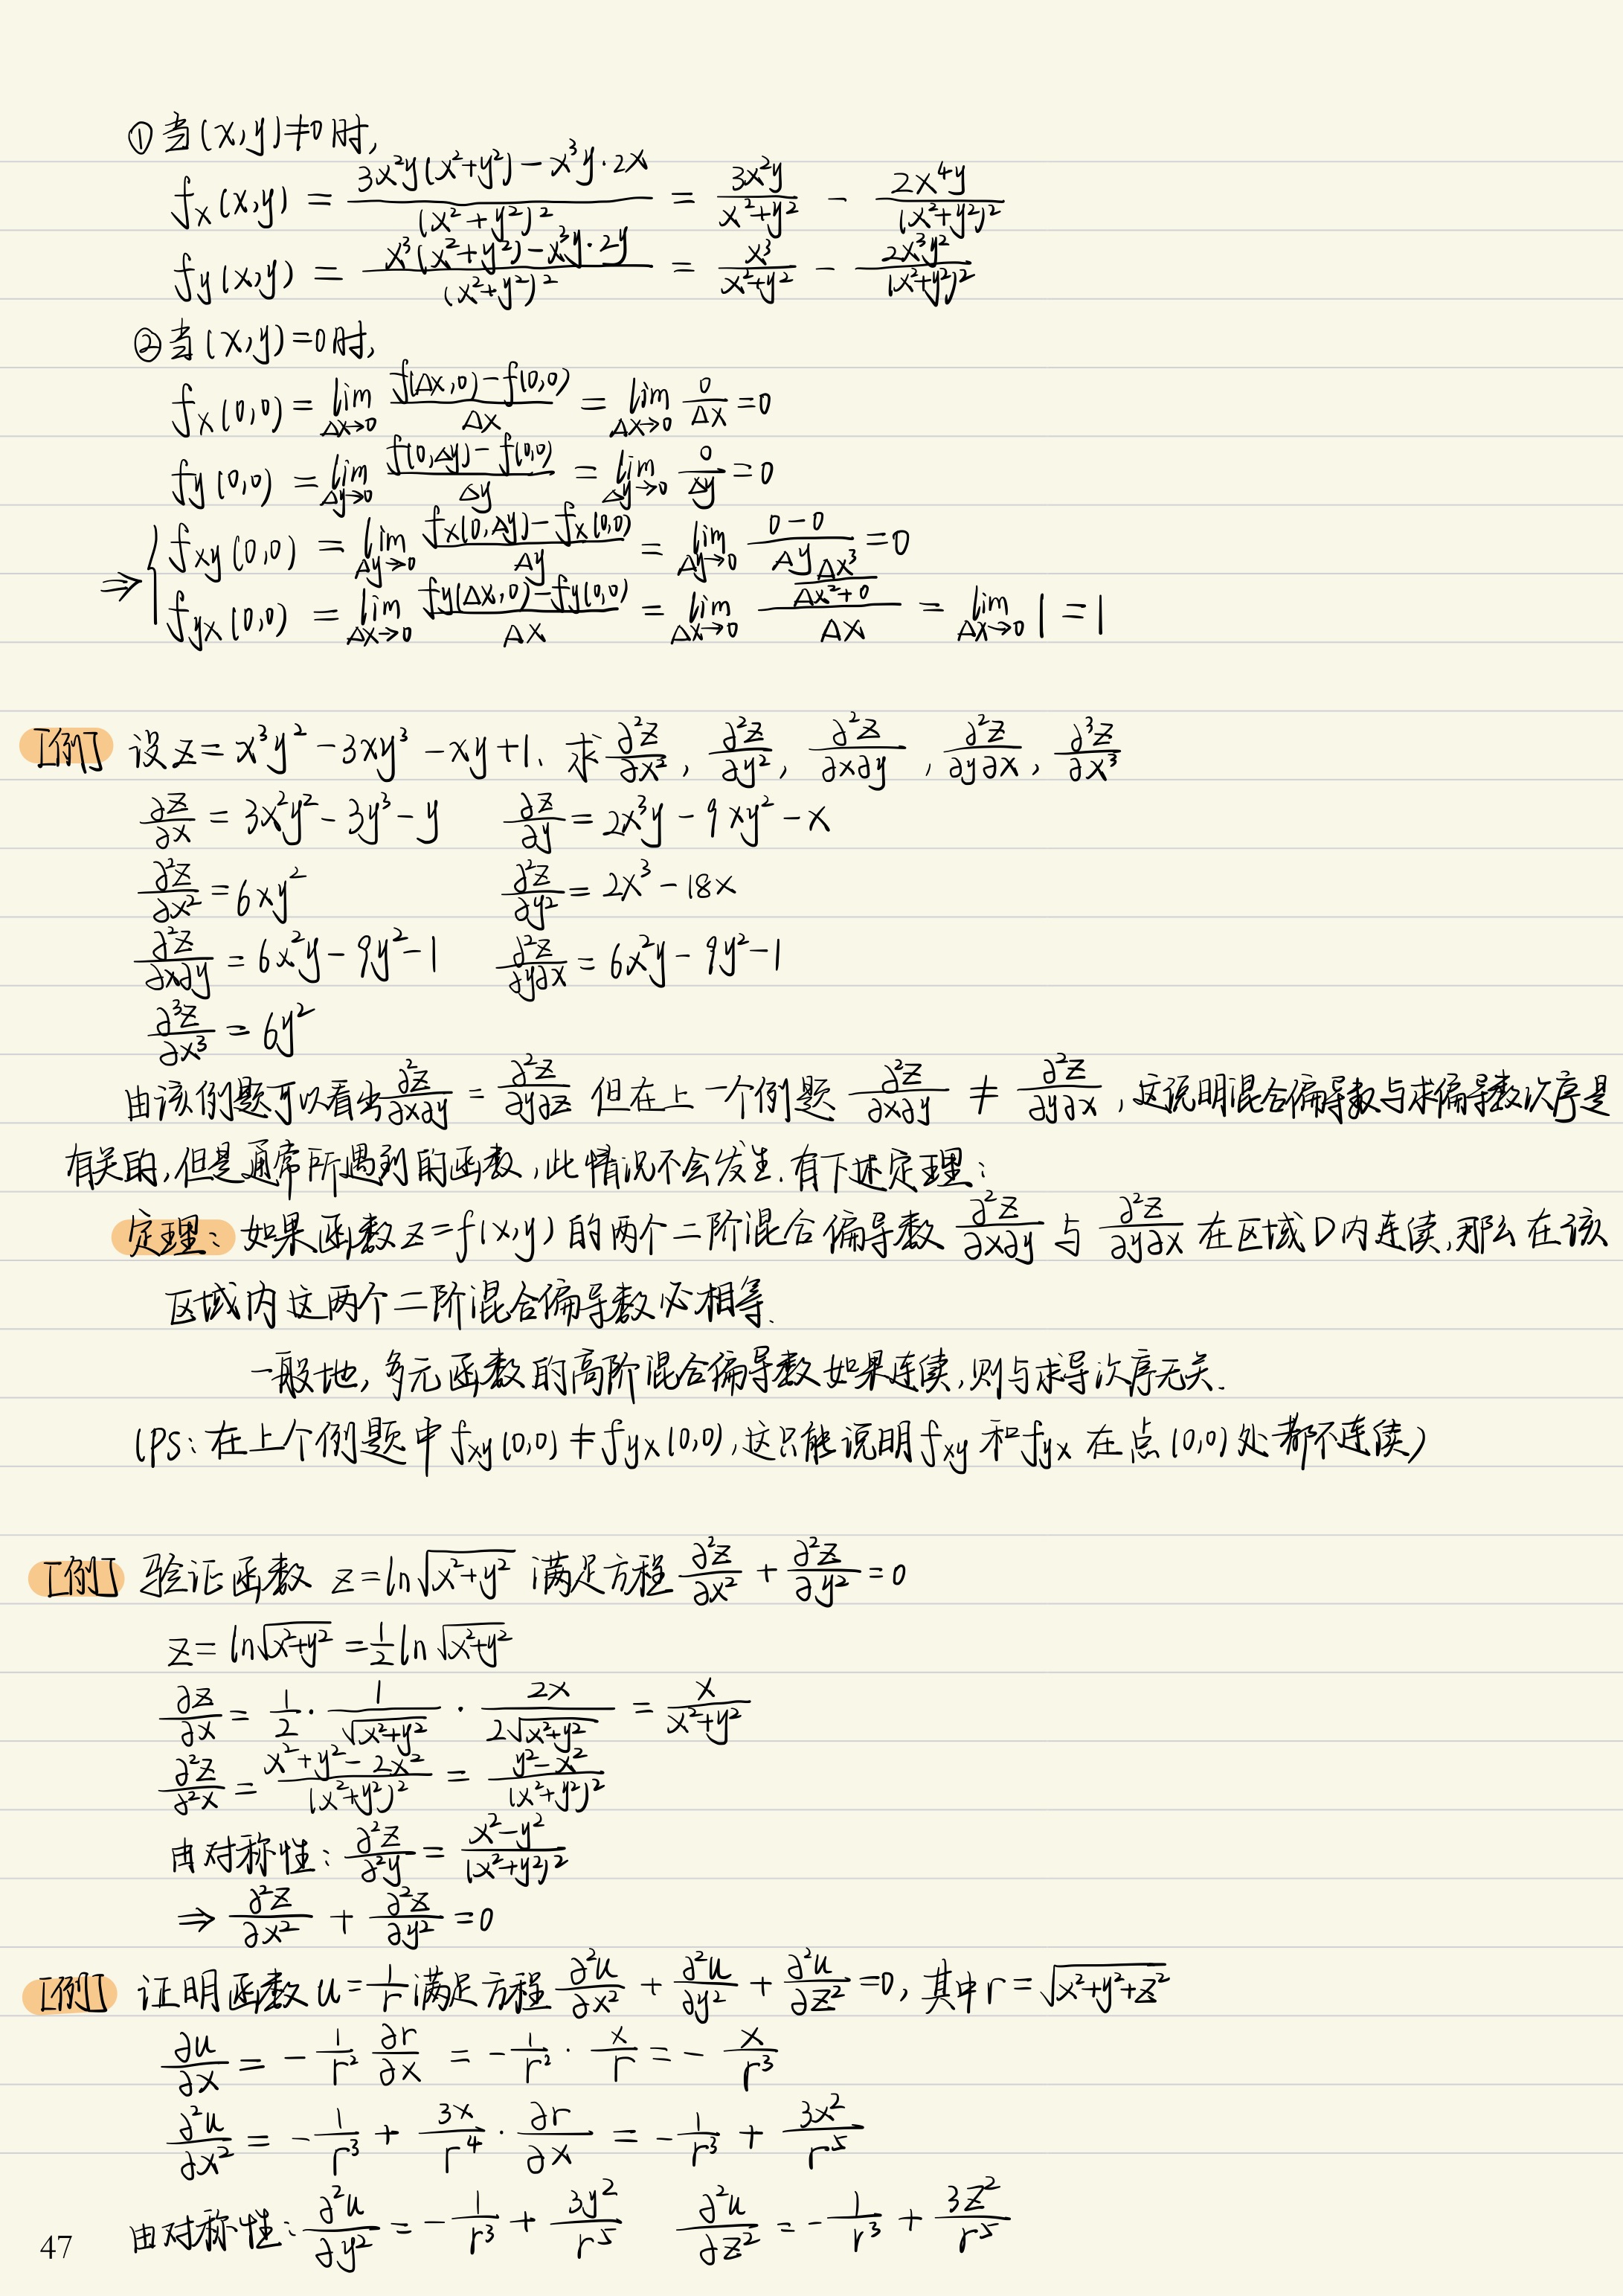 ①当(x,y)≠0时,
f_x(x,y) = \frac{3x²y(x²+y²)-x³y·2x}{(x²+y²)²} = \frac{3x²y}{x²+y²} - \frac{2x⁴y}{(x²+y²)²}
f_y(x,y) = \frac{x³(x²+y²)-x³y·2y}{(x²+y²)²} = \frac{x³}{x²+y²} - \frac{2x³y²}{(x²+y²)²}
②当(x,y)=0时,
f_x(0,0) = \lim_{Δx→0} \frac{f(Δx,0)-f(0,0)}{Δx} = \lim_{Δx→0} \frac{0}{Δx} = 0
f_y(0,0) = \lim_{Δy→0} \frac{f(0,Δy)-f(0,0)}{Δy} = \lim_{Δy→0} \frac{0}{Δy} = 0
⇒ { f_{xy}(0,0) = \lim_{Δy→0} \frac{f_x(0,Δy)-f_x(0,0)}{Δy} = \lim_{Δy→0} \frac{0-0}{Δy} = 0
f_{yx}(0,0) = \lim_{Δx→0} \frac{f_y(Δx,0)-f_y(0,0)}{Δx} = \lim_{Δx→0} \frac{\frac{Δx³}{Δx²+0}}{Δx} = \lim_{Δx→0} 1 = 1
[例] 设z = x³y² - 3xy³ - xy + 1. 求 \frac{∂²z}{∂x²}, \frac{∂²z}{∂y²}, \frac{∂²z}{∂x∂y}, \frac{∂²z}{∂y∂x}, \frac{∂³z}{∂x³}
\frac{∂z}{∂x} = 3x²y² - 3y³ - y \frac{∂z}{∂y} = 2x³y - 9xy² - x
\frac{∂²z}{∂x²} = 6xy² \frac{∂²z}{∂y²} = 2x³ - 18x
\frac{∂²z}{∂x∂y} = 6x²y - 9y² - 1 \frac{∂²z}{∂y∂x} = 6x²y - 9y² - 1
\frac{∂³z}{∂x³} = 6y²
由该例题可以看出 \frac{∂²z}{∂x∂y} = \frac{∂²z}{∂y∂z} 但在上一个例题 \frac{∂²z}{∂x∂y} ≠ \frac{∂²z}{∂y∂x}, 这说明混合偏导数与求偏导数次序是
有关的,但是通常所遇到的函数,此情况不会发生.有下述定理:
定理: 如果函数z=f(x,y)的两个二阶混合偏导数 \frac{∂²z}{∂x∂y} 与 \frac{∂²z}{∂y∂x} 在区域D内连续,那么在该
区域内这两个二阶混合偏导数必相等.
一般地,多元函数的高阶混合偏导数如果连续,则与求导次序无关.
(PS:在上个例题中f_{xy}(0,0)≠f_{yx}(0,0),这只能说明f_{xy}和f_{yx}在点(0,0)处都不连续)
[例] 验证函数 z = ln√(x²+y²) 满足方程 \frac{∂²z}{∂x²} + \frac{∂²z}{∂y²} = 0
z = ln√(x²+y²) = \frac{1}{2} ln √(x²+y²)
\frac{∂z}{∂x} = \frac{1}{2} · \frac{1}{√(x²+y²)} · \frac{2x}{2√(x²+y²)} = \frac{x}{x²+y²}
\frac{∂²z}{∂²x} = \frac{x²+y²-2x²}{(x²+y²)²} = \frac{y²-x²}{(x²+y²)²}
由对称性: \frac{∂²z}{∂²y} = \frac{x²-y²}{(x²+y²)²}
⇒ \frac{∂²z}{∂x²} + \frac{∂²z}{∂y²} = 0
[例] 证明函数 u = \frac{1}{r} 满足方程 \frac{∂²u}{∂x²} + \frac{∂²u}{∂y²} + \frac{∂²u}{∂z²} = 0, 其中 r = √(x²+y²+z²)
\frac{∂u}{∂x} = -\frac{1}{r²} \frac{∂r}{∂x} = -\frac{1}{r²} · \frac{x}{r} = -\frac{x}{r³}
\frac{∂²u}{∂x²} = -\frac{1}{r³} + \frac{3x}{r⁴} · \frac{∂r}{∂x} = -\frac{1}{r³} + \frac{3x²}{r⁵}
由对称性: \frac{∂²u}{∂y²} = -\frac{1}{r³} + \frac{3y²}{r⁵} \frac{∂²u}{∂z²} = -\frac{1}{r³} + \frac{3z²}{r⁵}
47